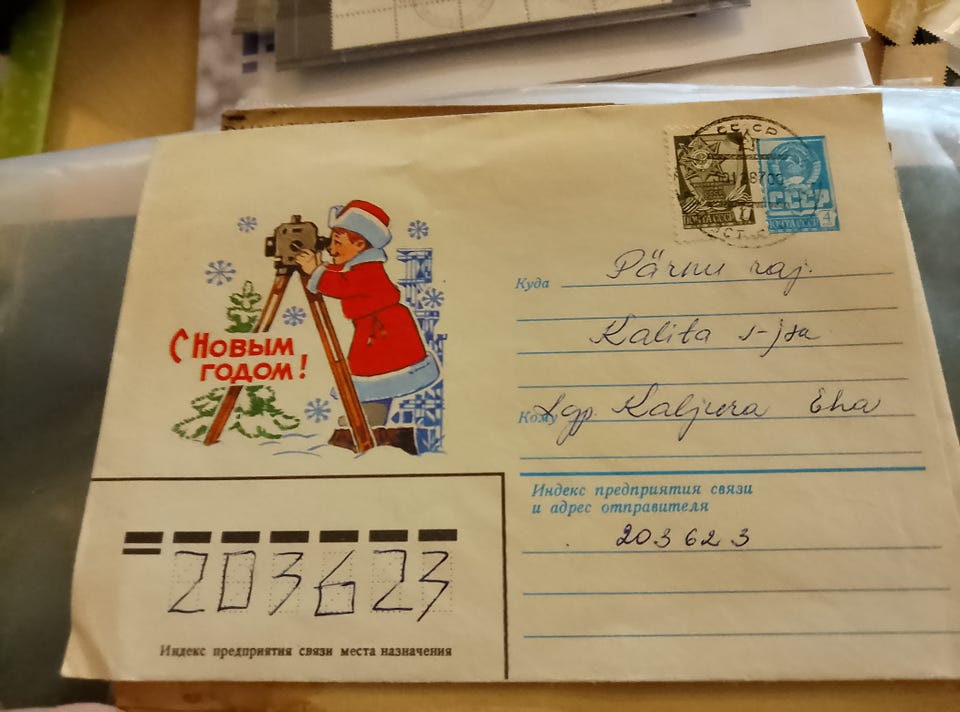 СССР
ПОЧТА СССР
СССР
ПОЧТА СССР 4
Куда Pärnu raj.
Kalita s-jsk
Кому Lgp. Kaljura Eha
С Новым
годом!
Индекс предприятия связи
и адрес отправителя
203623
203623
Индекс предприятия связи места назначения